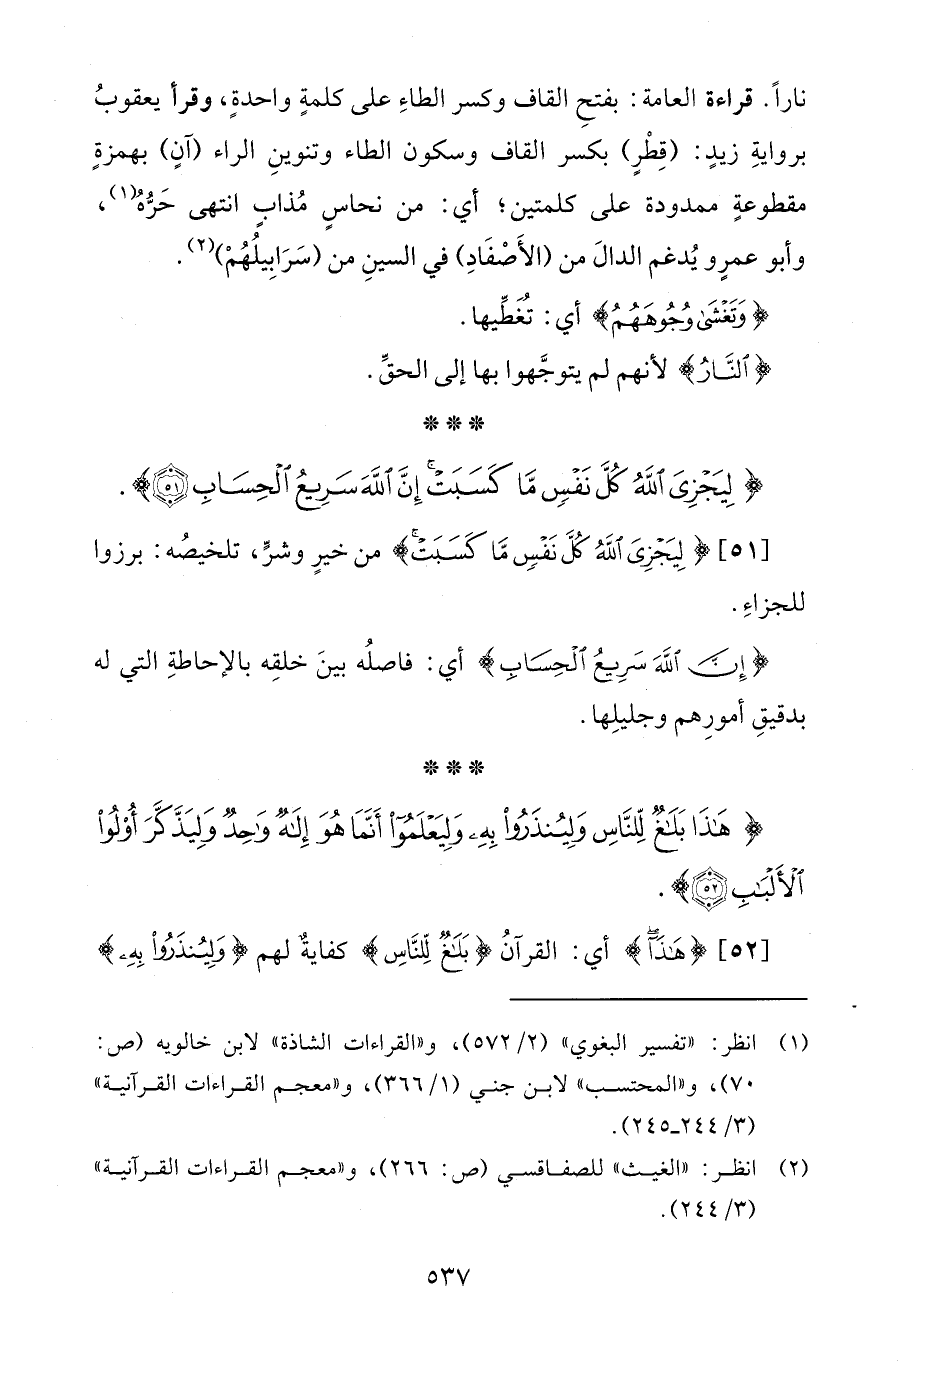 ناراً. قراءة العامة: بفتحِ القاف وكسر الطاءِ على كلمةٍ واحدةٍ، وقرأ يعقوبُ
بروايةِ زيدٍ: (قِطْرٍ) بكسر القاف وسكون الطاء وتنوينِ الراء (آنٍ) بهمزةٍ
مقطوعةٍ ممدودة على كلمتين؛ أي: من نحاسٍ مُذابٍ انتهى حَرُّهُ(١)،
وأبو عمرٍو يُدغم الدالَ من (الأَصْفَادِ) في السينِ من (سَرَابِيلُهُمْ)(٢).
﴿وَتَغْشَىٰ وُجُوهَهُمُ﴾ أي: تُغَطِّيها.
﴿ٱلنَّارُ﴾ لأنهم لم يتوجَّهوا بها إلى الحقِّ.
* * *
﴿لِيَجْزِىَ ٱللَّهُ كُلَّ نَفْسٍ مَّا كَسَبَتْ ۚ إِنَّ ٱللَّهَ سَرِيعُ ٱلْحِسَابِ ٥١﴾.
[٥١] ﴿لِيَجْزِىَ ٱللَّهُ كُلَّ نَفْسٍ مَّا كَسَبَتْ ۚ﴾ من خيرٍ وشرٍّ، تلخيصُه: برزوا
للجزاءِ.
﴿إِنَّ ٱللَّهَ سَرِيعُ ٱلْحِسَابِ﴾ أي: فاصلُه بينَ خلقِه بالإحاطةِ التي له
بدقيقِ أمورِهم وجليلِها.
* * *
﴿هَٰذَا بَلَٰغٌ لِّلنَّاسِ وَلِيُنذَرُوا۟ بِهِۦ وَلِيَعْلَمُوٓا۟ أَنَّمَا هُوَ إِلَٰهٌ وَٰحِدٌ وَلِيَذَّكَّرَ أُو۟لُوا۟
ٱلْأَلْبَٰبِ ٥٢﴾.
[٥٢] ﴿هَٰذَا﴾ أي: القرآنُ ﴿بَلَٰغٌ لِّلنَّاسِ﴾ كفايةٌ لهم ﴿وَلِيُنذَرُوا۟ بِهِۦ﴾
(١) انظر: «تفسير البغوي» (٢/ ٥٧٢)، و«القراءات الشاذة» لابن خالويه (ص:
٧٠)، و«المحتسب» لابن جني (١/ ٣٦٦)، و«معجم القراءات القرآنية»
(٣/ ٢٤٤ـ٢٤٥).
(٢) انظر: «الغيث» للصفاقسي (ص: ٢٦٦)، و«معجم القراءات القرآنية»
(٣/ ٢٤٤).
٥٣٧